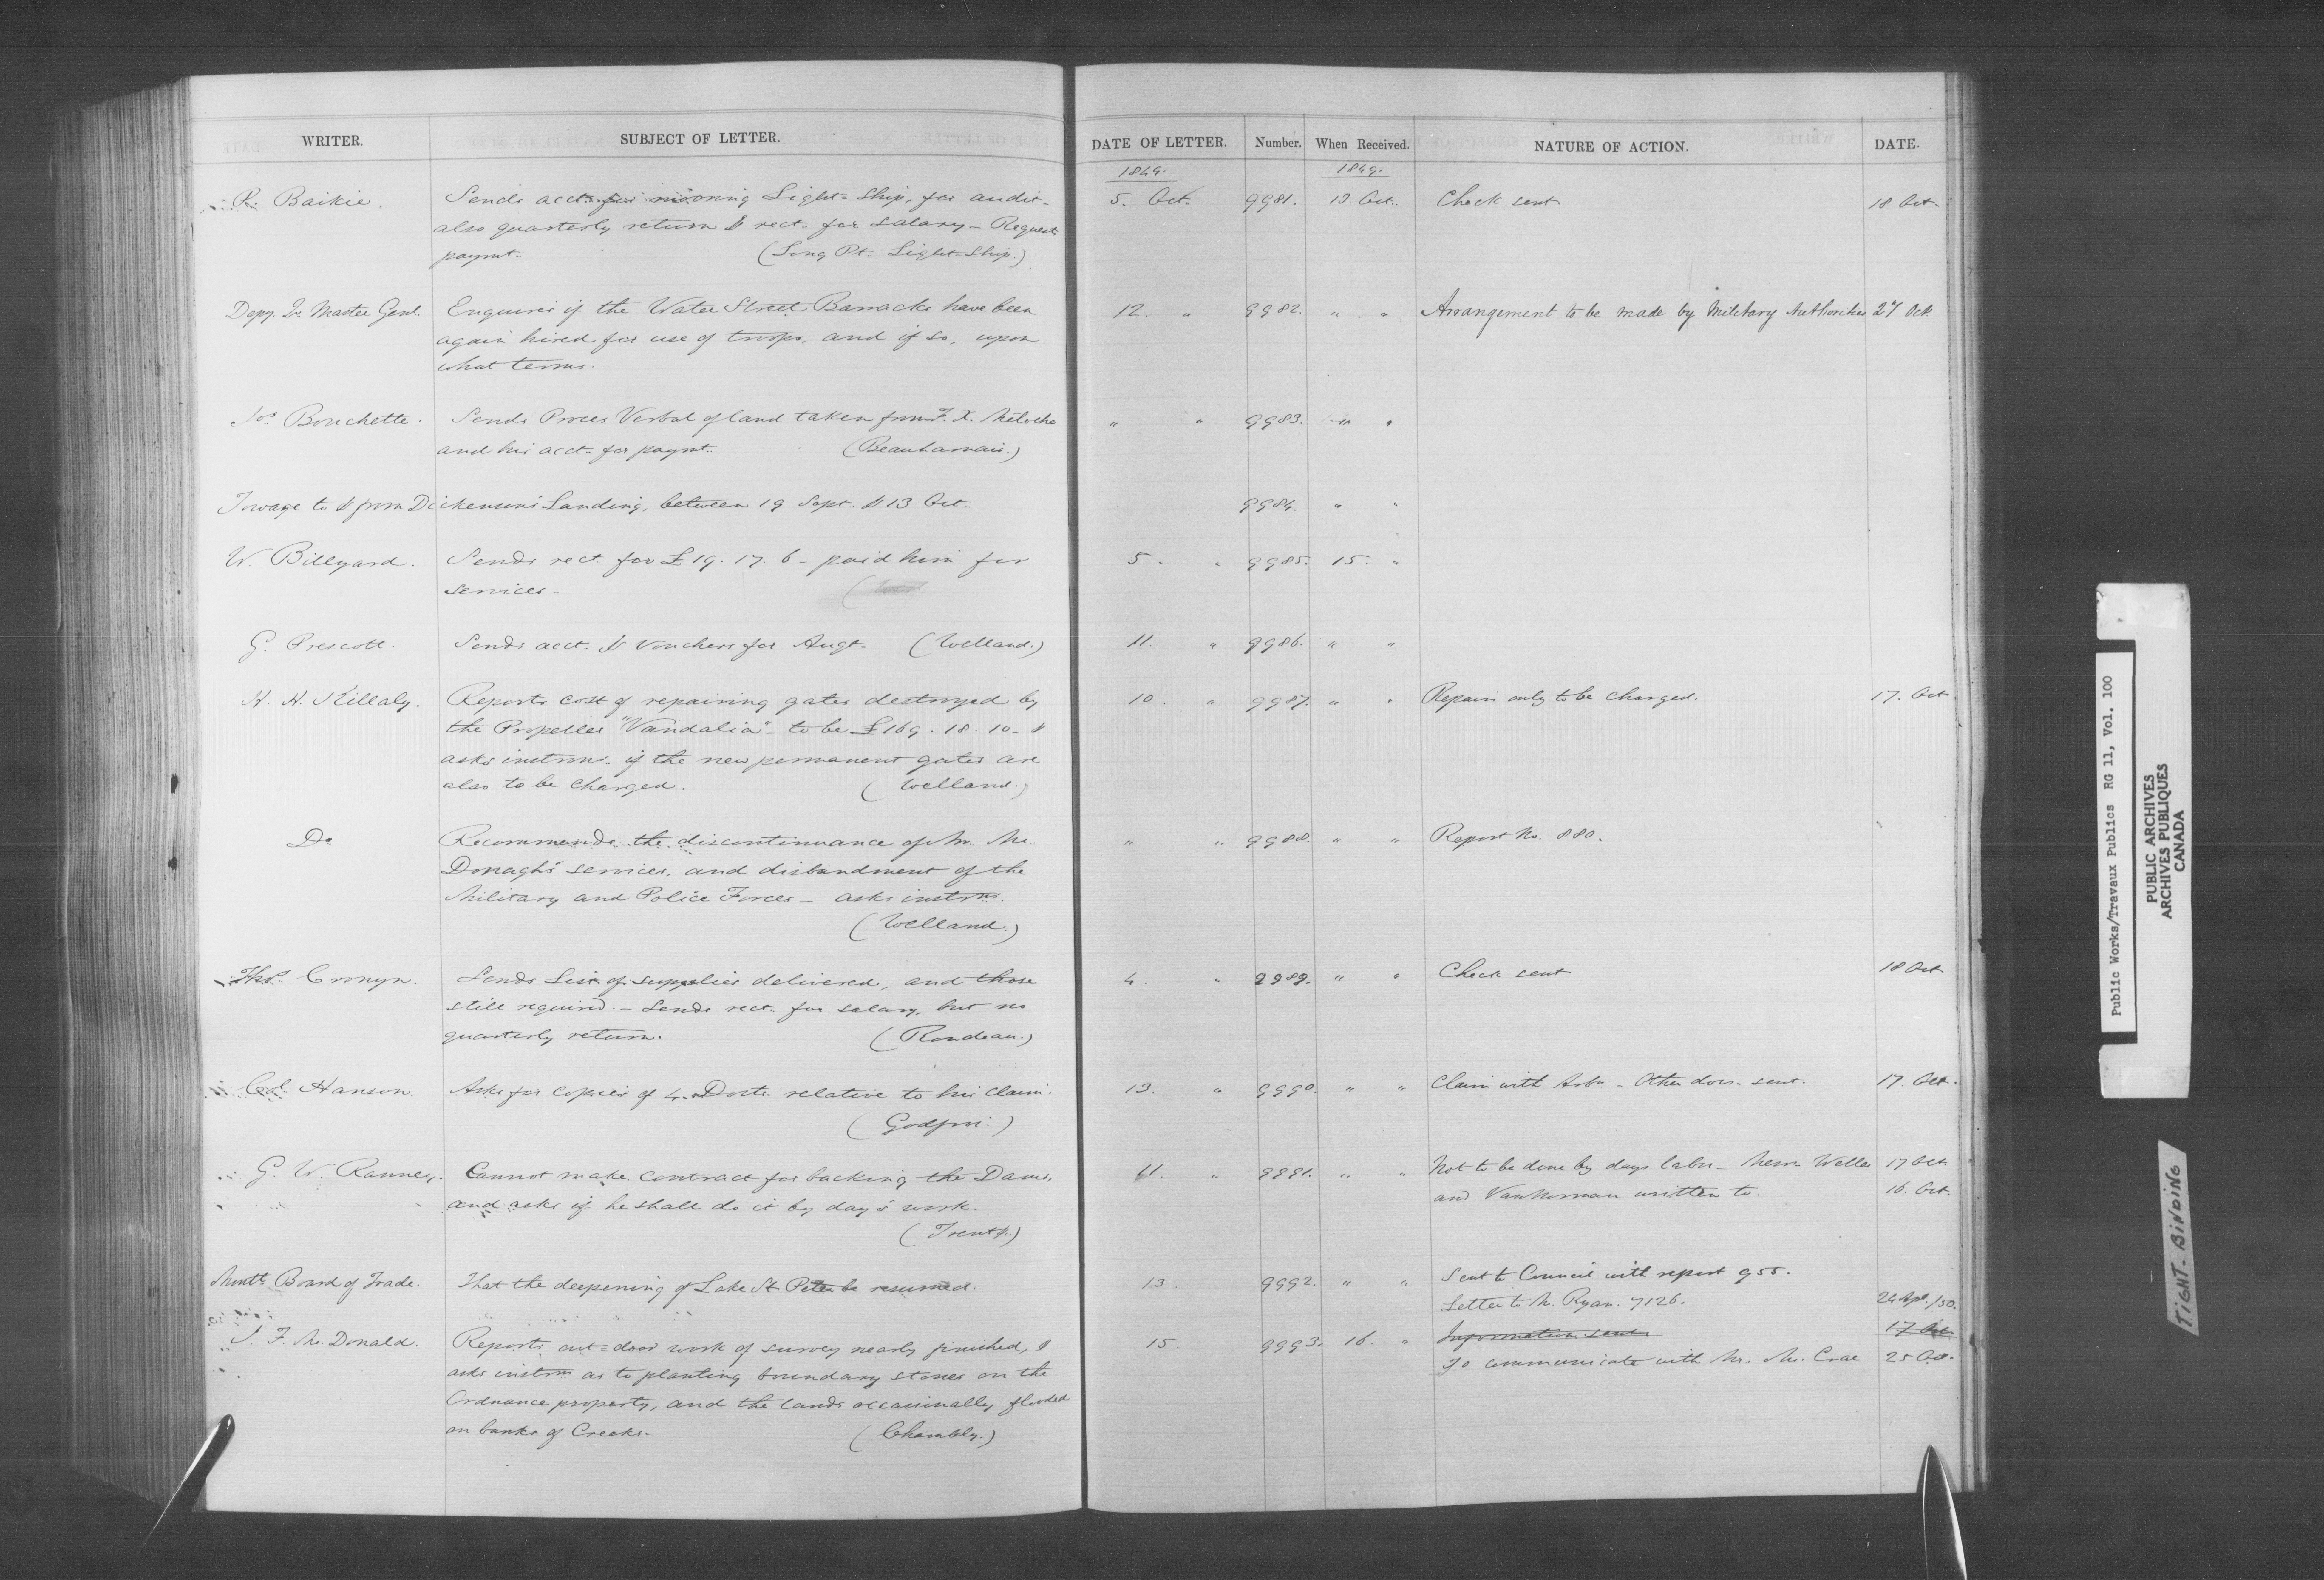 WRITER. SUBJECT OF LETTER.
R. Baikie. Sends acct. for mooring Light-Ship, for audit-
also quarterly return & rect. for salary - Requests
paymt. (Long Pt. Light-Ship.)
Depy. Qr. Master Genl. Enquires if the Water Street Barracks have been
again hired for use of troops, and if so, upon
what terms.
Jos. Bouchette. Sends Proces Verbal of land taken from F. X. Meloche
and his acct. for paymt. (Beauharnais.)
Towage to & from Dickenson's Landing, between 19 Sept. & 13 Oct.
W. Billyard. Sends rect. for £19. 17. 6 - paid him for
services -
G. Prescott. Sends acct. & Vouchers for Augt. (Welland.)
H. H. Killaly. Reports cost of repairing gates destroyed by
the Propeller "Vandalia" - to be £169. 18. 10 - &
asks instrns. if the new permanent gates are
also to be charged. (Welland.)
Do Recommends the discontinuance of Mr. Mc.
Donagh's services, and disbandment of the
Military and Police Forces - asks instrns.
(Welland.)
Thos. Cronyn. Sends List of supplies delivered, and those
still required. - Sends rect. for salary, but no
quarterly return. (Rondeau.)
Col. Hanson. Asks for copies of 4 Docts. relative to his claim.
(Godfroi.)
G. W. Ranney. Cannot make contract for backing the Dams,
and asks if he shall do it by day's work.
(Trent.)
Montl. Board of Trade. That the deepening of Lake St. Peter be resumed.
J. F. Mc. Donald. Reports out-door work of survey nearly finished, &
asks instrns as to planting boundary stones on the
Ordnance property, and the lands occasionally flooded
on banks of Creeks. (Chambly.)
DATE OF LETTER. Number. When Received. NATURE OF ACTION. DATE.
1849. 1849.
5. Oct. 9981. 13 Oct. Check sent 18 Oct.
12. " 9982. " " Arrangement to be made by Military Authorities 27 Oct.
" " 9983. " "
9984. " "
5 . " 9985. 15. "
11. " 9986. " "
10. " 9987. " " Repairs only to be charged. 17. Oct
" " 9988. " " Report No. 880.
4. " 9989. " " Check sent 18 Oct
13. " 9990. " " Claim with Arbn - Other docs. sent. 17. Oct.
11. " 9991. " " Not to be done by days labr - Messrs Weller 17 Oct.
and VanNorman written to. 16. Oct.
13. 9992. " " Sent to Council with report 955.
Letter to M. Ryan. 7126. 24 Apl. /50.
15. 9993. 16. " Information sent. 17 Oct.
To communicate with Mr. Mc. Crae 25 Oct.
Public Works/Travaux Publics RG 11, Vol. 100
PUBLIC ARCHIVES
ARCHIVES PUBLIQUES
CANADA
TIGHT-BINDING